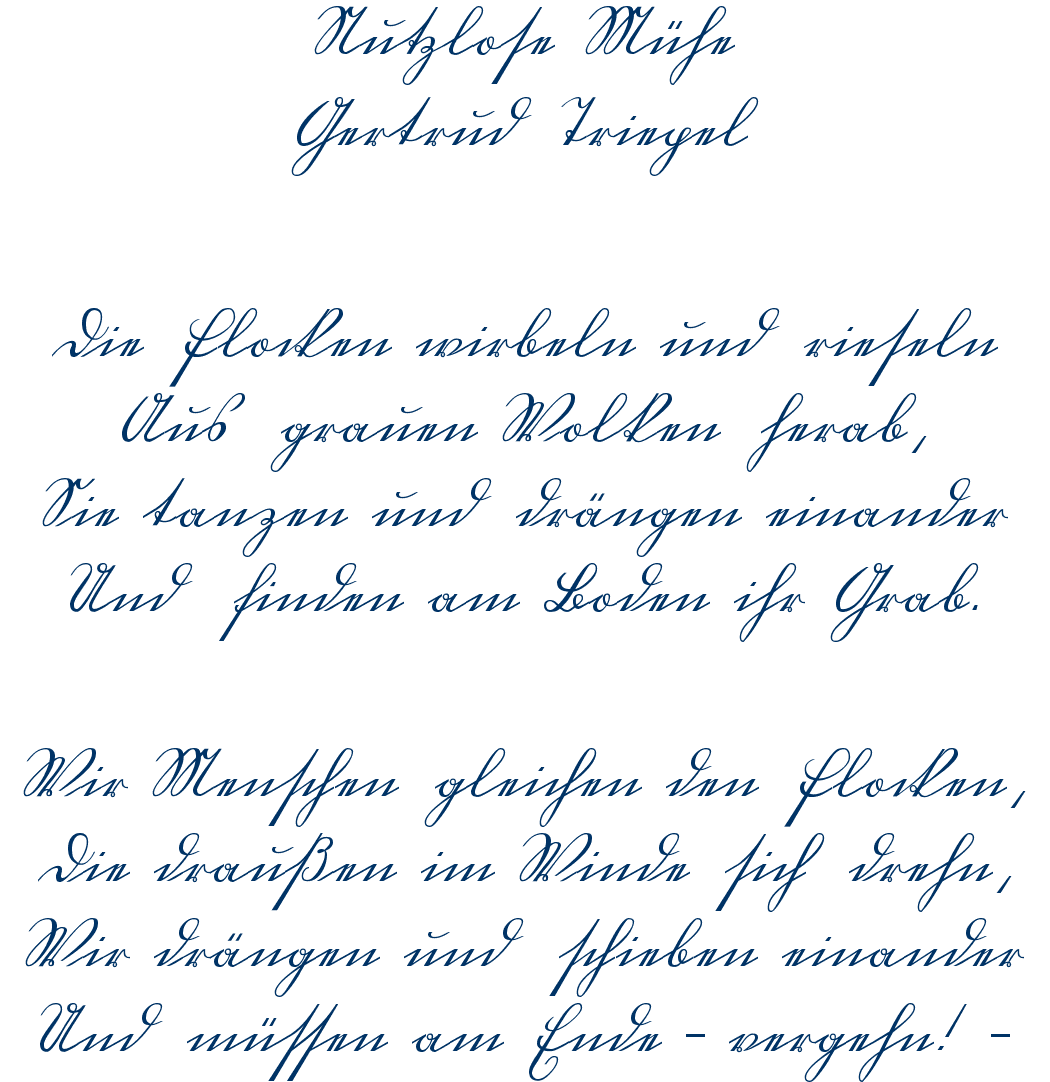 Nutzlose Mühe
Gertrud Triepel
Die Flocken wirbeln und rieseln
Aus grauen Wolken herab,
Sie tanzen und drängen einander
Und finden am Boden ihr Grab.
Wir Menschen gleichen den Flocken,
Die draußen im Winde sich drehn,
Wir drängen und schieben einander
Und müssen am Ende – vergehn! –